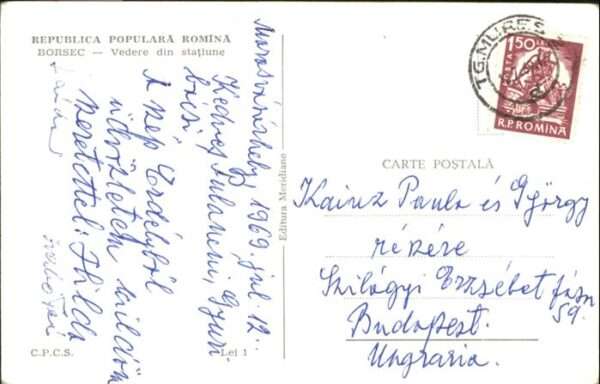 REPUBLICA POPULARĂ ROMÎNĂ
BORSEC — Vedere din stațiune
Marosvásárhely, 1969. júl. 12.
Kedves Paulaneni, Gyuri
bácsi
A szép Erdélyből
üdvözletem küldöm
szeretettel: Hilda
C.P.C.S.
Lei 1
Editura Meridiane
TG. MURES
1,50 LEI
POSTA
R.P. ROMINA
CARTE POSTALĂ
Kainz Paula és György
részére
Szilágyi Erzsébet fasor
59.
Budapest.
Ungraria.